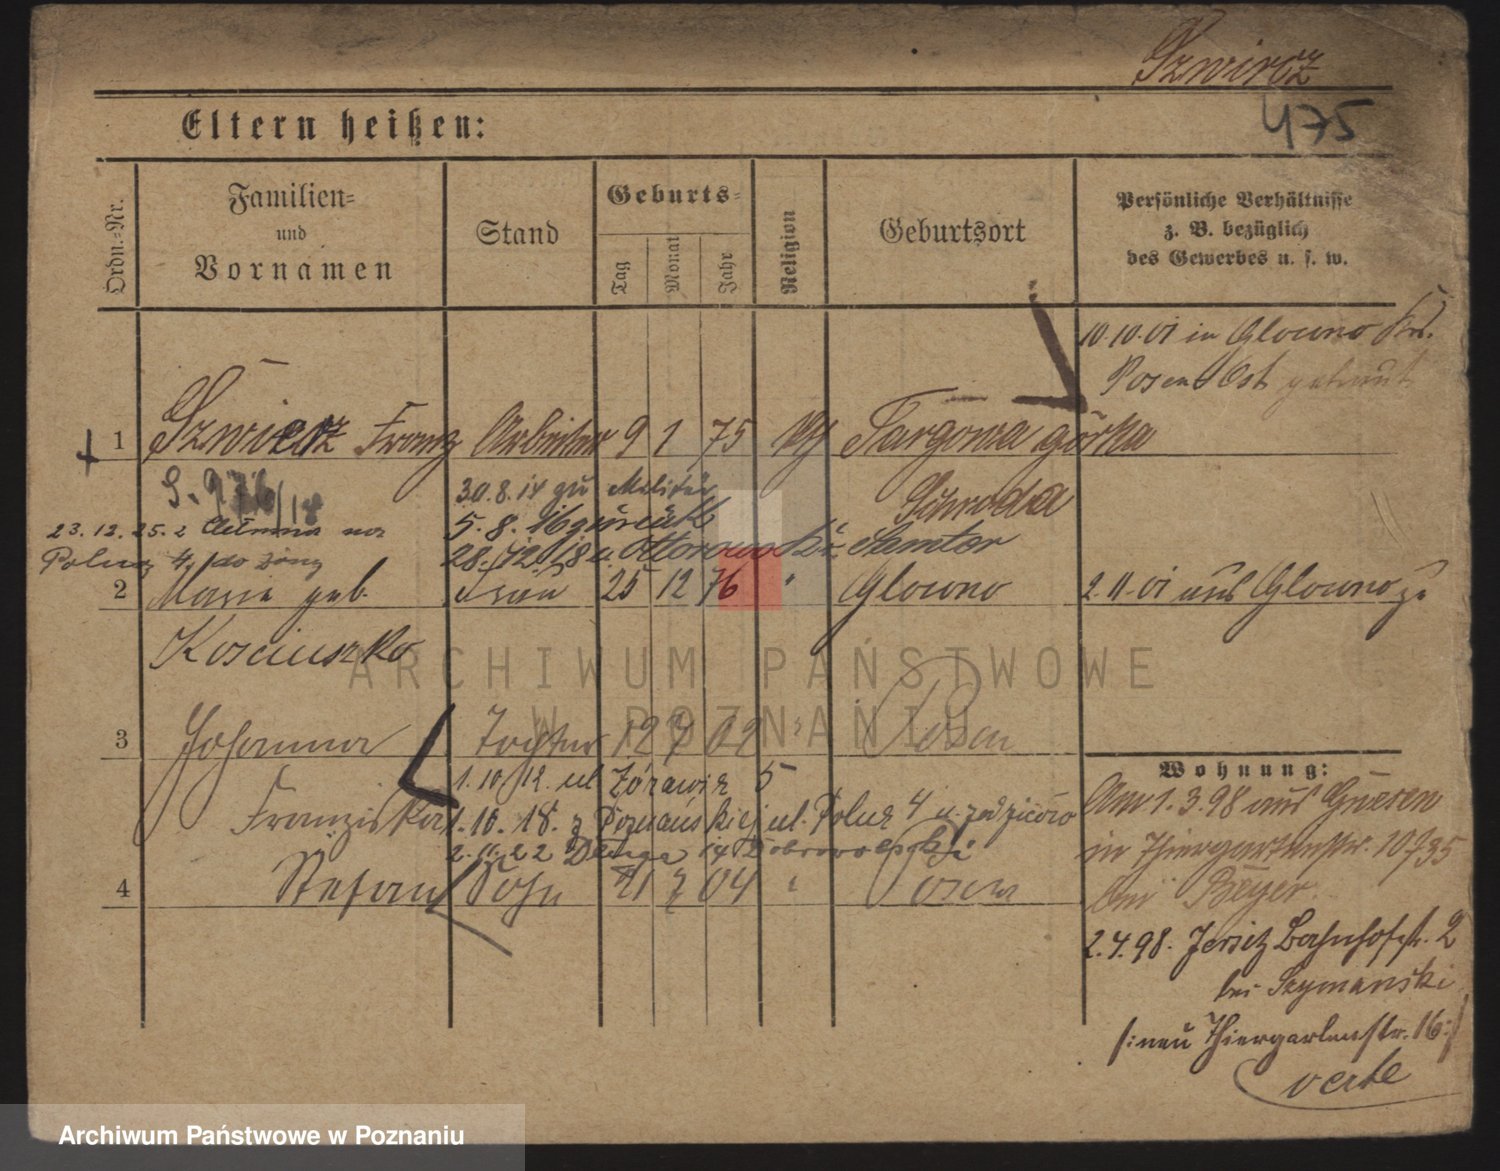 Szwircz
475
Eltern heißen:
Ordn.-Nr.
Familien-
und
Vornamen
Stand
Geburts-
Tag
Monat
Jahr
Religion
Geburtsort
Persönliche Verhältnisse
z. B. bezüglich
des Gewerbes u. s. w.
10.10.01 in Glowno Krs.
Posen Ost getraut
1 Franz Arbeiter 9 1 75 Targowa górka
30.8.14 zu Militär Schroda
23.12.25.
5.8.16 zurück
28.12.18 n. Ottorowo Kr. Samter
2 Marie geb. Frau 25 12 76 " Glowno 2.11.01 aus Glowno z.
Kosciuszko
3 Johanna Tochter 12 7 02 " Posen
1.10.12. ul Żórawia 5
Franziska
1.10.18. z Poznańskiej ul. Polna 4
2.11.22 Długa 14 Dobrowolski
4 Stefan Sohn 21 7 04 " Posen
Wohnung:
Am 1.3.98 aus Gnesen
in Thiergartenstr. 10
bei Beyer
2.4.98. Jersitz Bahnhofstr. 2
bei Szymanski
/:neu Thiergartenstr. 16:/
verte
ARCHIWUM PAŃSTWOWE
W POZNANIU
Archiwum Państwowe w Poznaniu